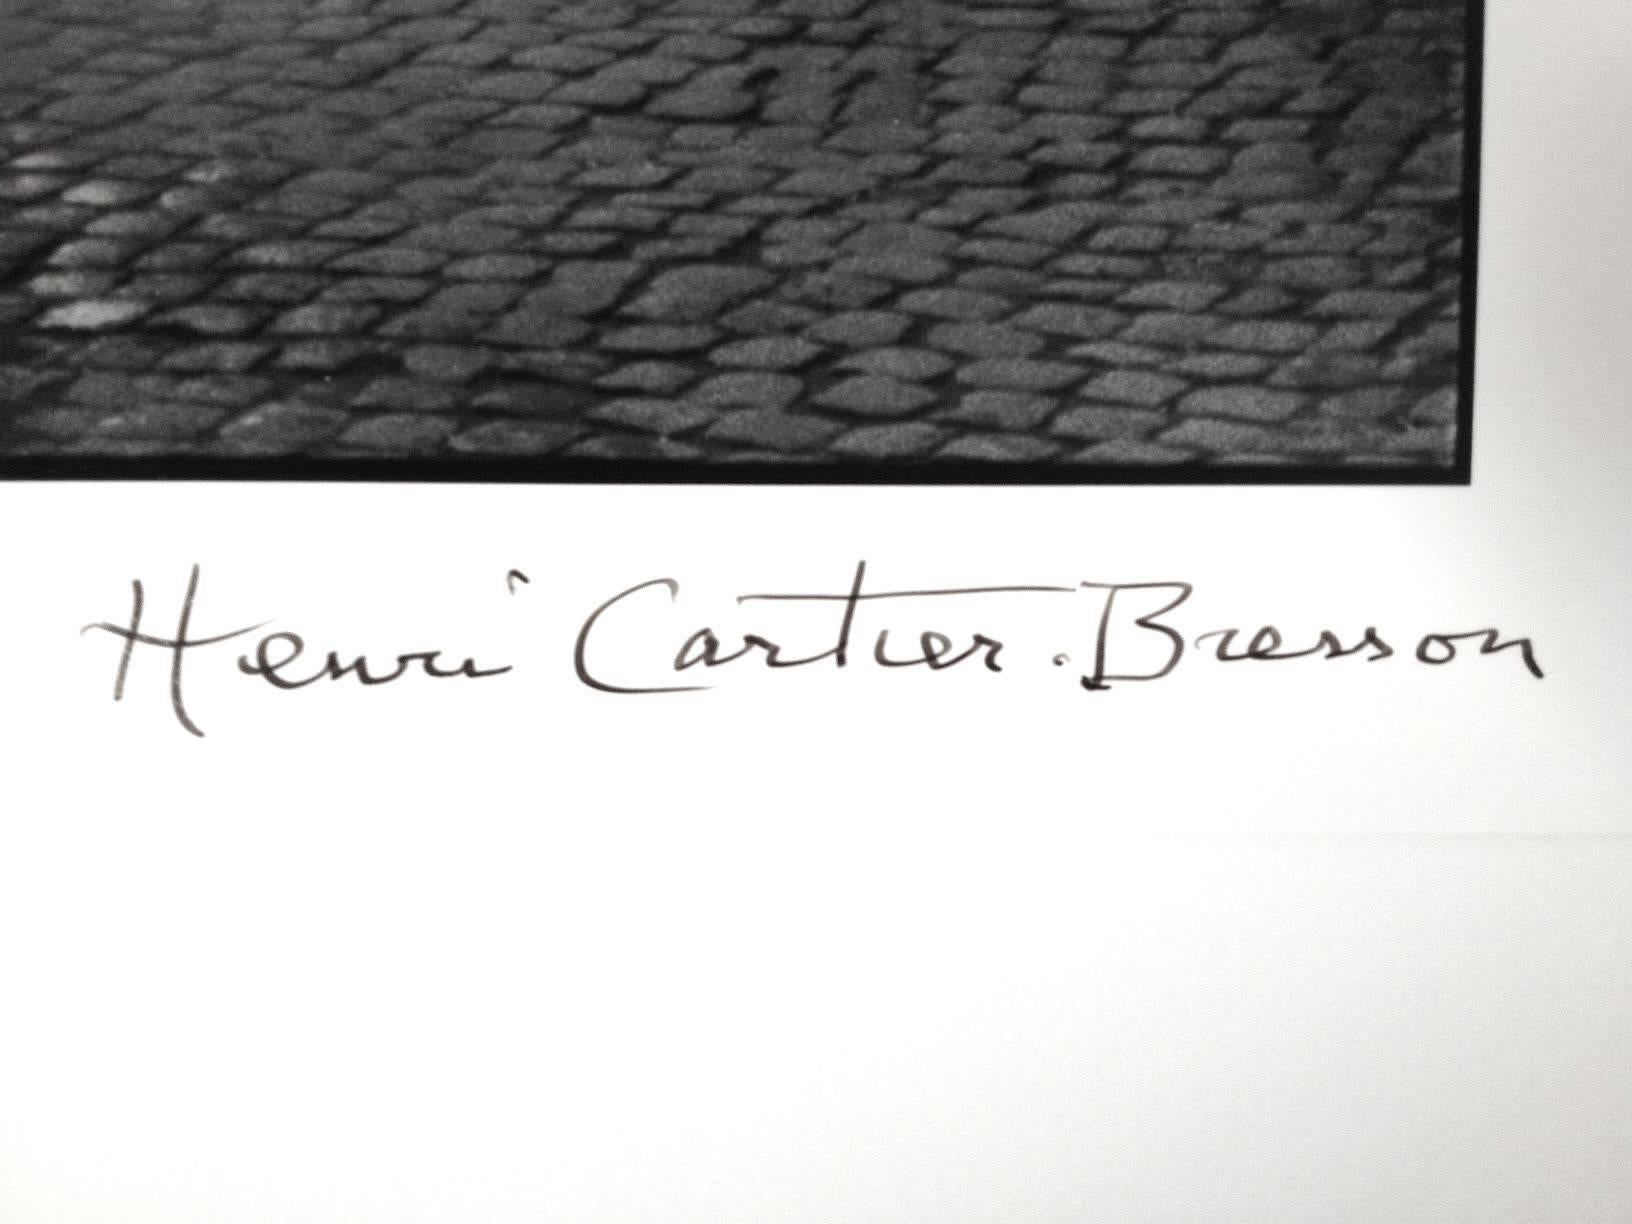 Henri Cartier.Bresson